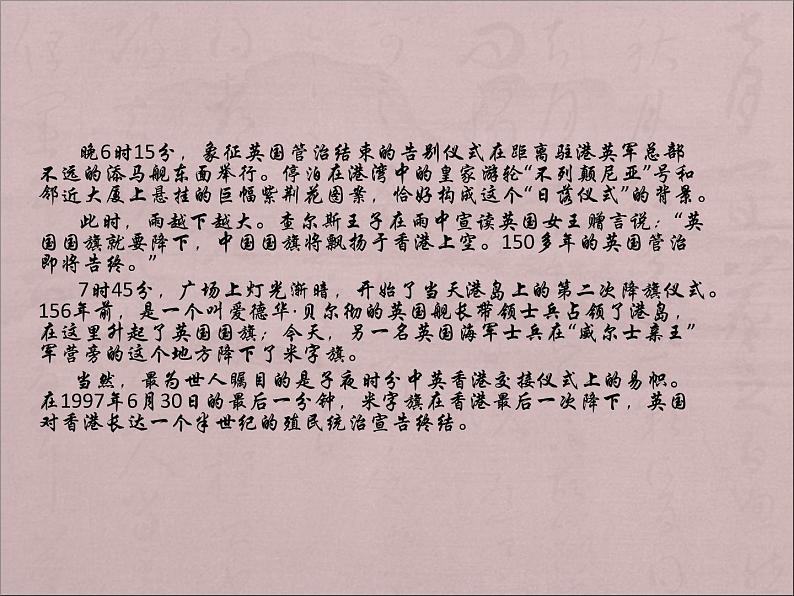 晚6时15分，象征英国管治结束的告别仪式在距离驻港英军总部
不远的添马舰东面举行。停泊在港湾中的皇家游轮“不列颠尼亚”号和
邻近大厦上悬挂的巨幅紫荆花图案，恰好构成这个“日落仪式”的背景。
此时，雨越下越大。查尔斯王子在雨中宣读英国女王赠言说：“英
国国旗就要降下，中国国旗将飘扬于香港上空。150多年的英国管治
即将告终。”
7时45分，广场上灯光渐暗，开始了当天港岛上的第二次降旗仪式。
156年前，是一个叫爱德华·贝尔彻的英国舰长带领士兵占领了港岛，
在这里升起了英国国旗；今天，另一名英国海军士兵在“威尔士亲王”
军营旁的这个地方降下了米字旗。
当然，最为世人瞩目的是子夜时分中英香港交接仪式上的易帜。
在1997年6月30日的最后一分钟，米字旗在香港最后一次降下，英国
对香港长达一个半世纪的殖民统治宣告终结。